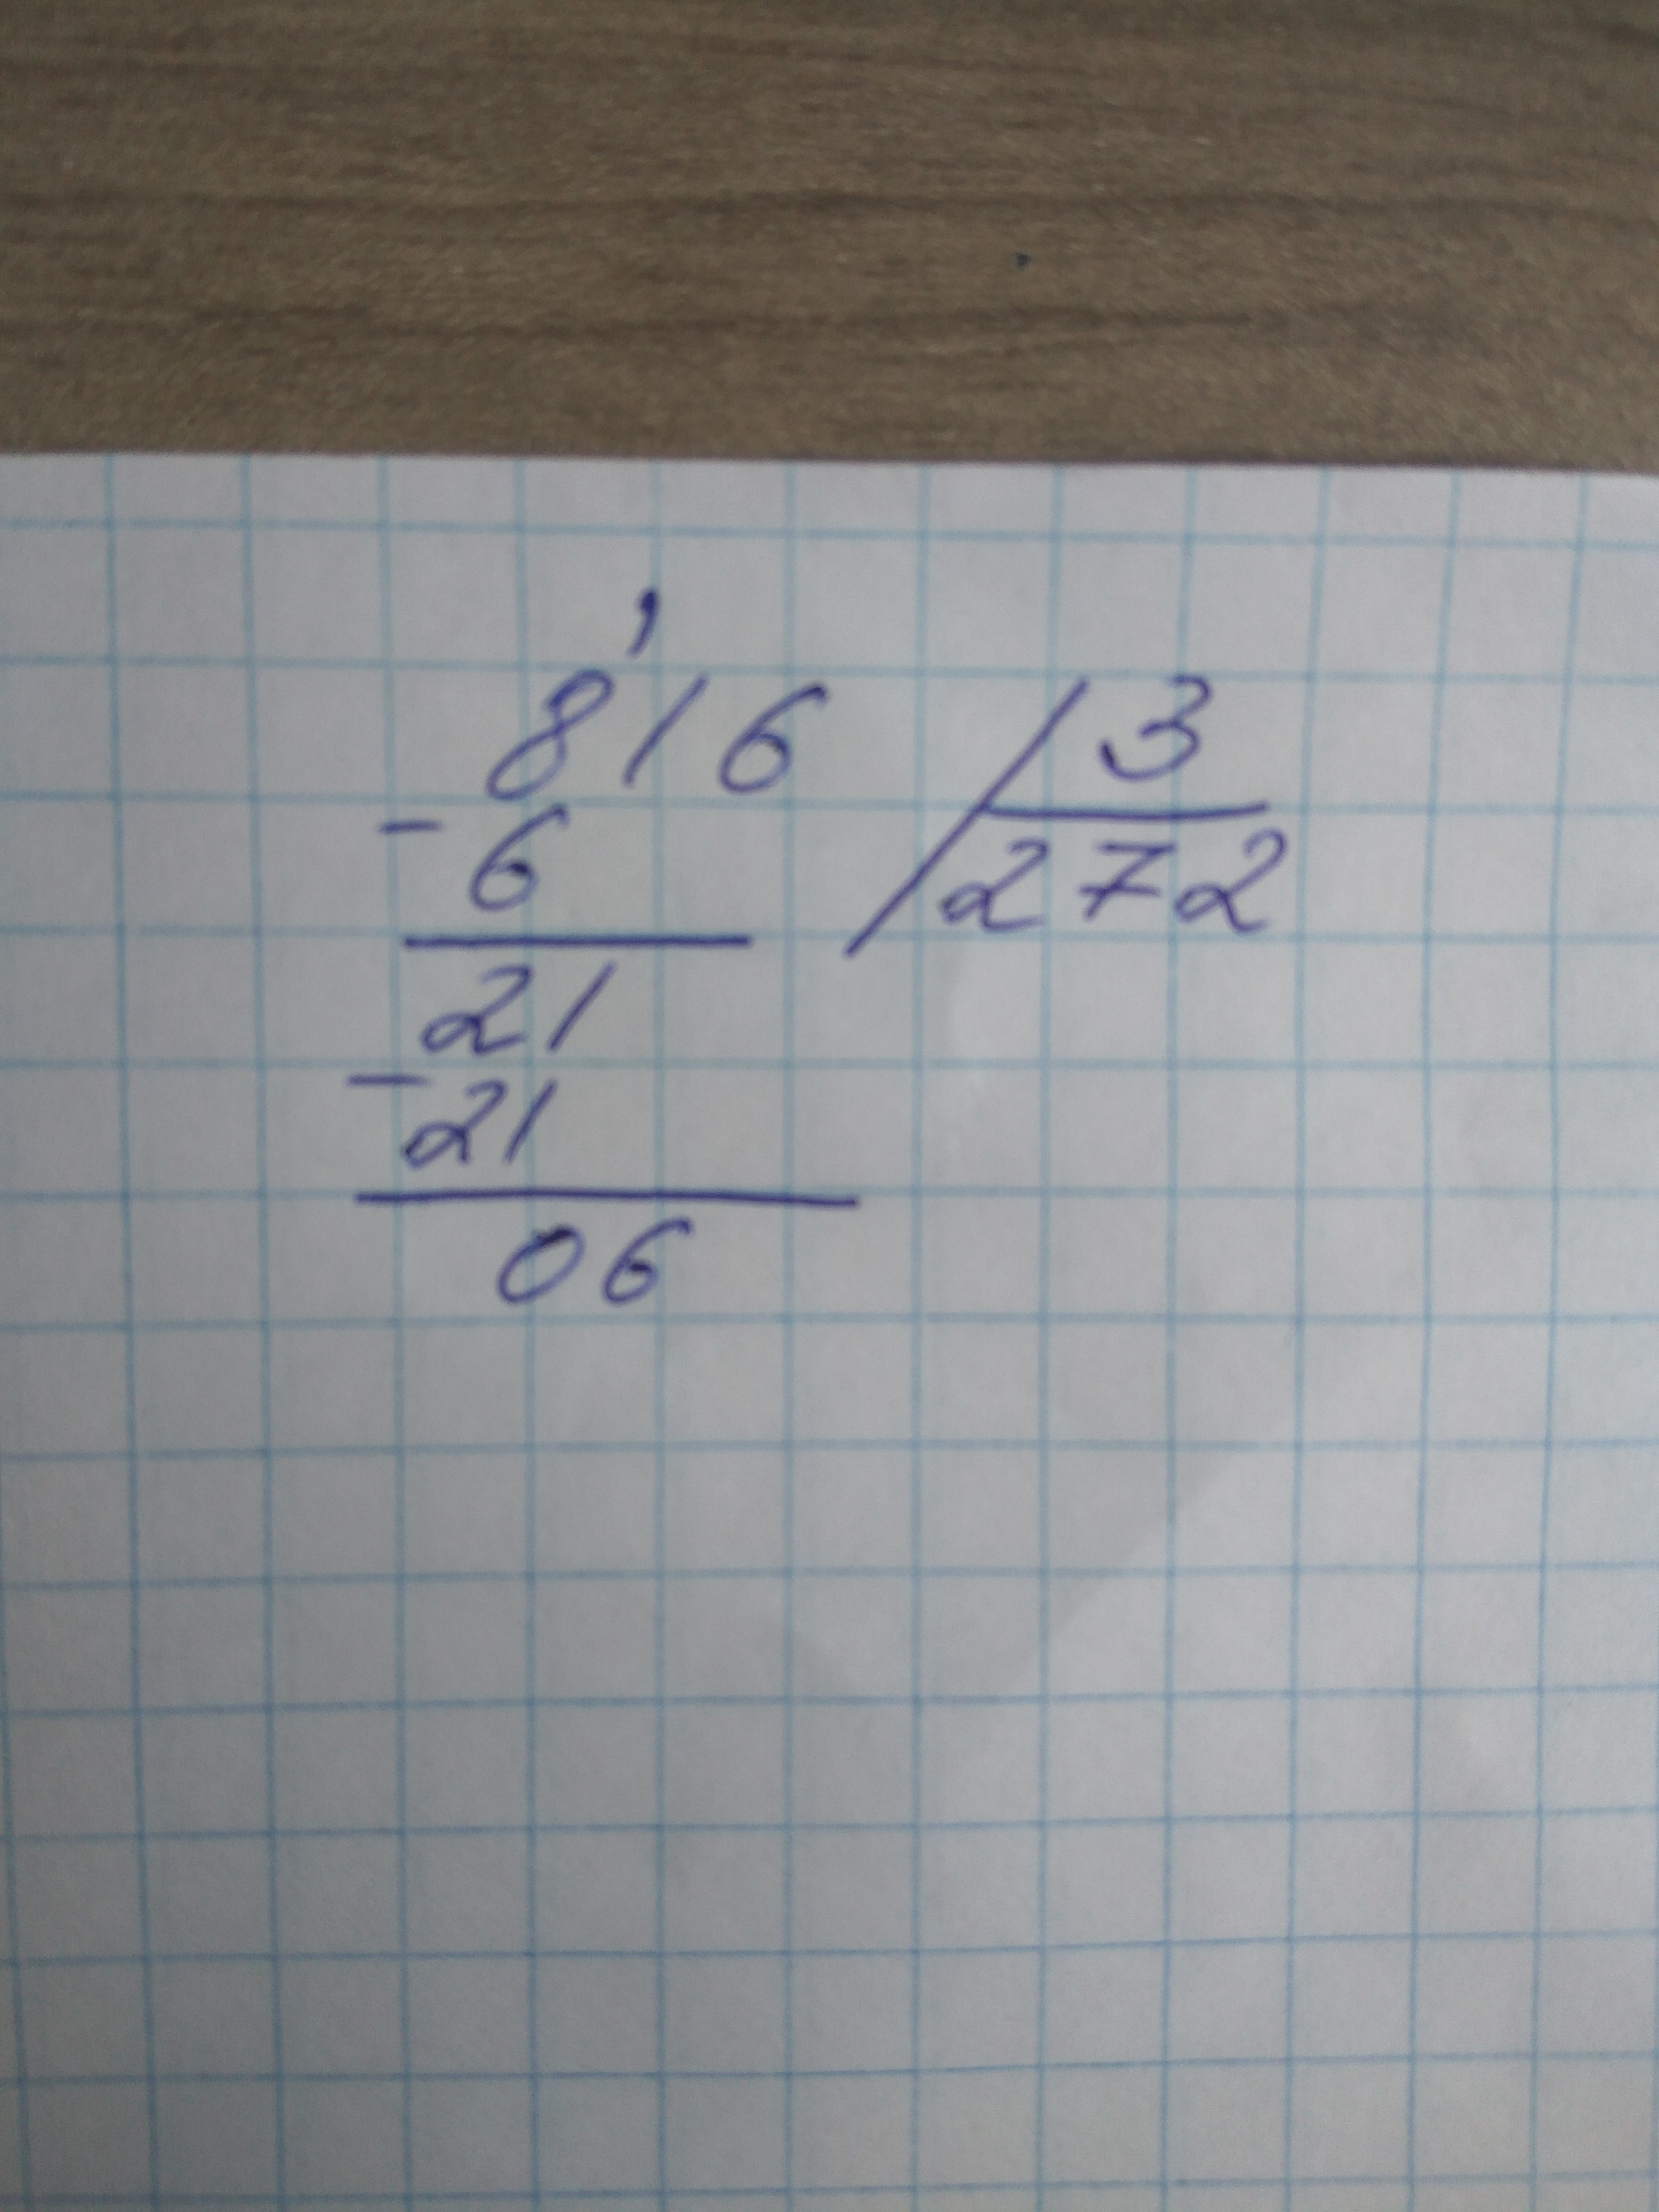 ,
816 / 3
- 6 272
21
- 21
06